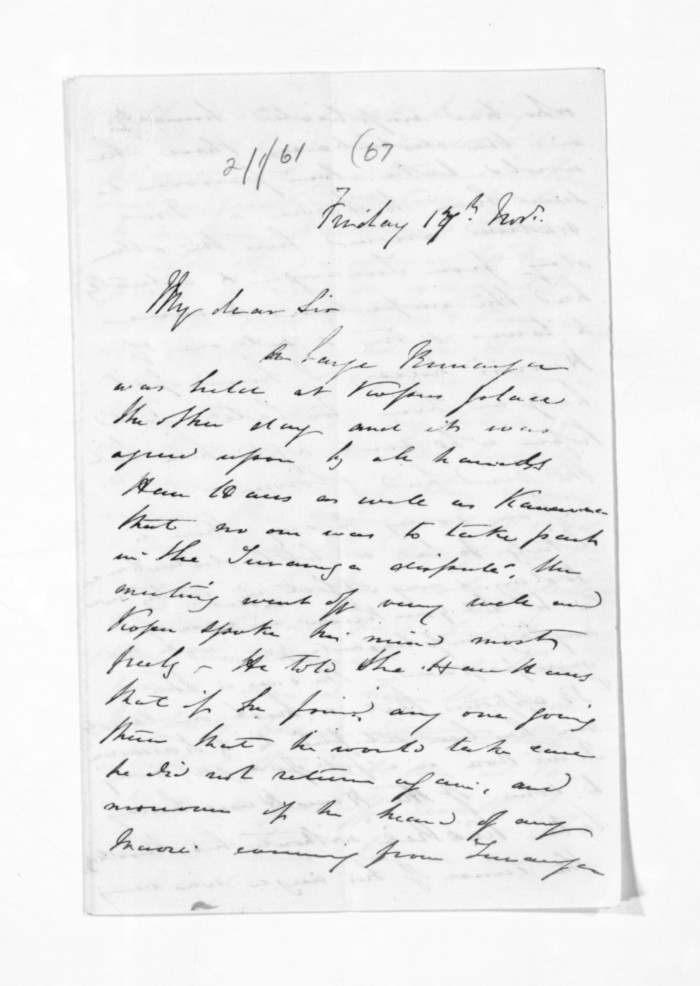 2/1/61 (67
Friday 17th Novr.
My dear Sir
A large Runanga
was held at Kopus place
the other day and it was
agreed upon by all hands
Hau Haus as well as Kawana
that no one was to take part
in the Turanga dispute, the
meeting went off very well and
Kopu spoke his mind most
freely - He told the Hau Haus
that if he found any one going
there that he would take care
he did not return again, and
moreover if he heard of any
Maori coming from Turanga